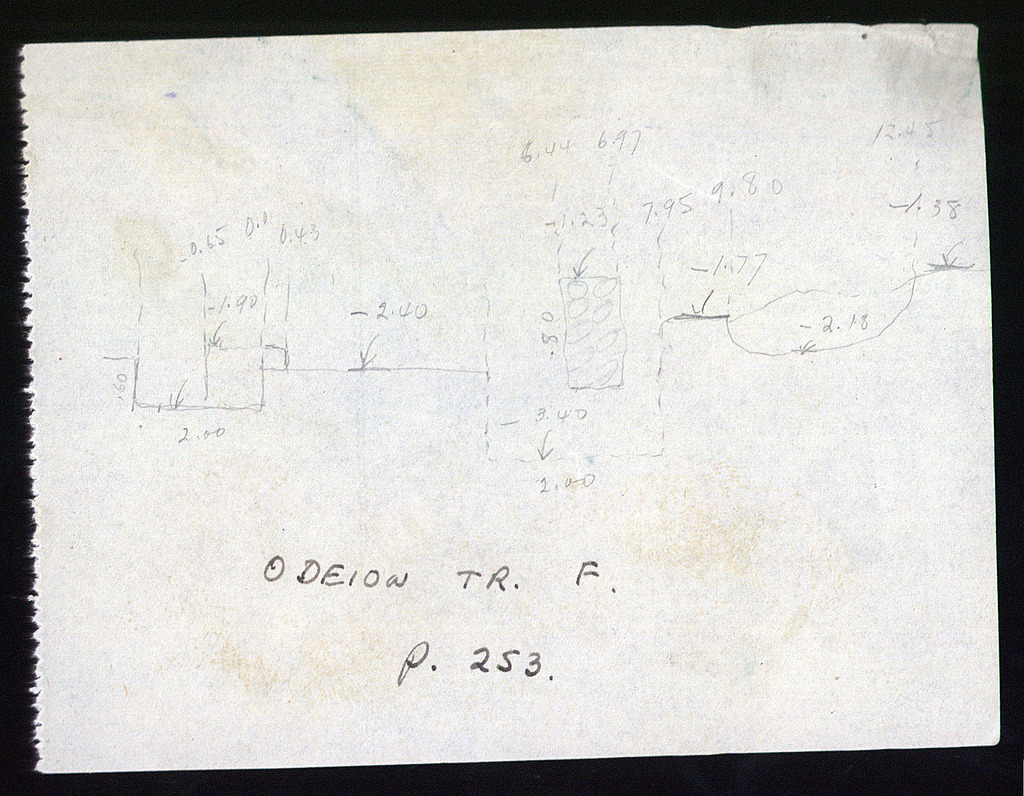 12.45
6.44 6.97
9.80
7.95
-1.38
-0.65 0.0 0.43
-1.23
-1.77
-1.90
-2.40
-2.18
.80
.60
-3.40
2.00
2.00
ODEION TR. F.
p. 253.